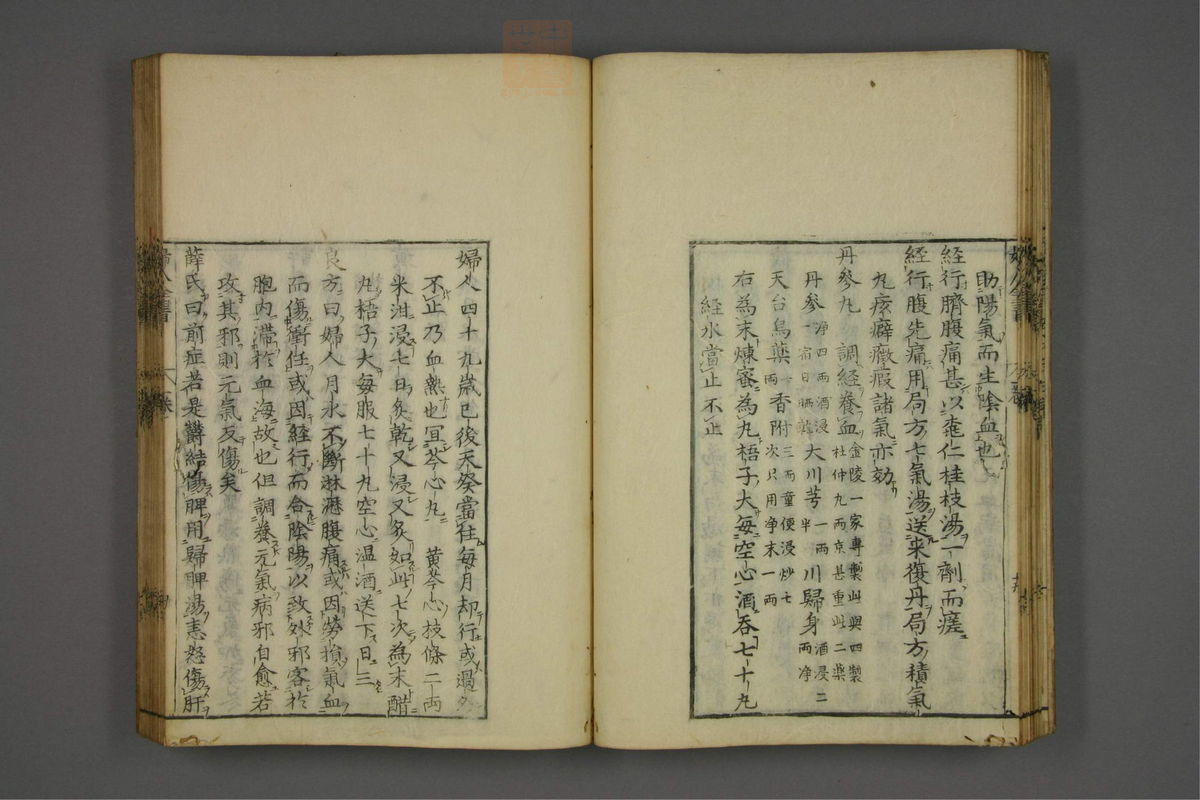 助陽氣而生陰血也
経行臍腹痛甚以桃仁桂枝湯一劑而瘥
経行腹先痛用局方七氣湯送來復丹局方積氣
九痃癖癥瘕諸氣亦効
丹參丸 調経養血金陵一家專製此與四製杜仲丸兩京甚重此二藥
丹參一淨四兩酒浸宿日晒乾 大川芎一兩半 川歸身酒浸二兩淨
天台烏藥一兩 香附三兩童便浸炒七次只用淨末一兩
右為末煉蜜為丸梧子大每空心酒吞七十丸
経水當止不止
婦人四十九歳已後天癸當住每月却行或過多
不止乃血熱也宜芩心丸 黄芩心枝條二兩
米泔浸七日炙乾又浸又炙如此七次為末醋
丸梧子大每服七十丸空心温酒送下日三
良方曰婦人月水不断淋瀝腹痛或因勞損氣血
而傷衝任或因経行而合陰陽以致外邪客於
胞内滯於血海故也但調養元氣病邪自愈若
攻其邪則元氣反傷矣
薛氏曰前症若是欝結傷脾用歸脾湯恚怒傷肝